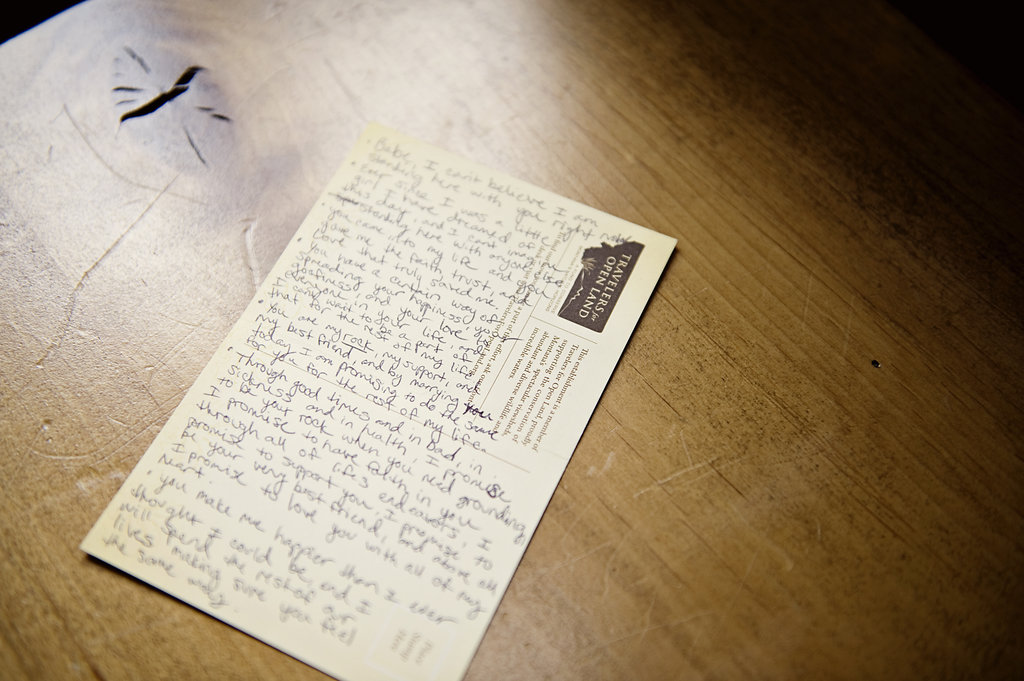 • Babe, I can't believe I am
standing here with you right now
ever since I was a little
girl I have dreamed of
this day, and I can't imagine
standing here with anyone else
• you came into my life
gave me the faith, trust, and
love that truly saved me
• You have a certain way of
spreading your happiness,
goofiness, and your love, to
everyone, and
can't wait to be a part of
that for the rest of my life
• You are my rock, my support, and
my best friend and by marrying you
today I am promising to do the same
for you for the rest of my life.
• Through good times and in bad, in
sickness and in health, I promise
to be your rock when you need grounding
I promise to have faith in you
through all of life's endeavors, I
promise to support you, I promise to
be your very best friend, and above all
I promise to love you with all of my
heart.
• You make me happier than I ever
thought I could be, and I
will spend the rest of our
lives making sure you feel
the same way
TRAVELERS for
OPEN LAND
This establishment is a member of
Travelers for Open Land, proudly
supporting the conservation of
Montana's spectacular viewsheds,
abundant and diverse wildlife and
incredible waters.
Place
Stamp
Here